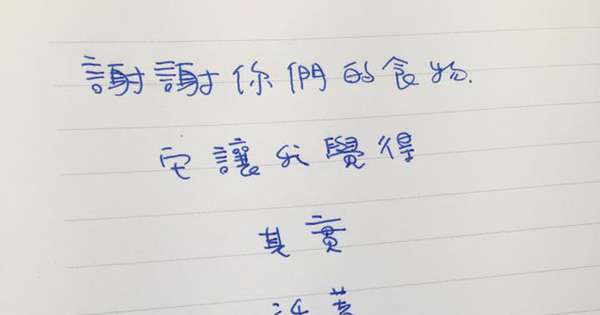 謝謝你們的食物.
它讓我覺得
其實
活著